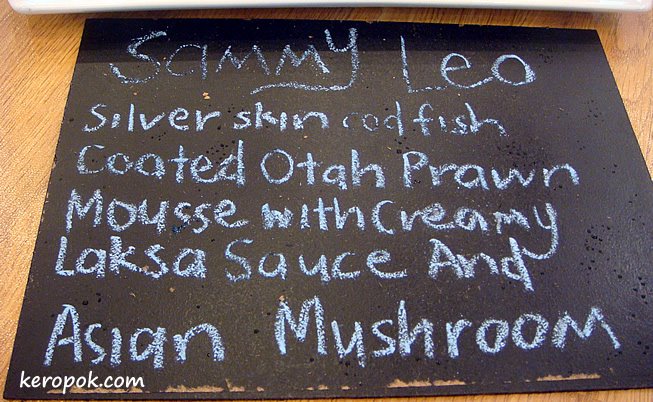 Sammy Leo
Silver skin cod fish
Coated Otah Prawn
Mousse with Creamy
Laksa Sauce And
Asian Mushroom
keropok.com